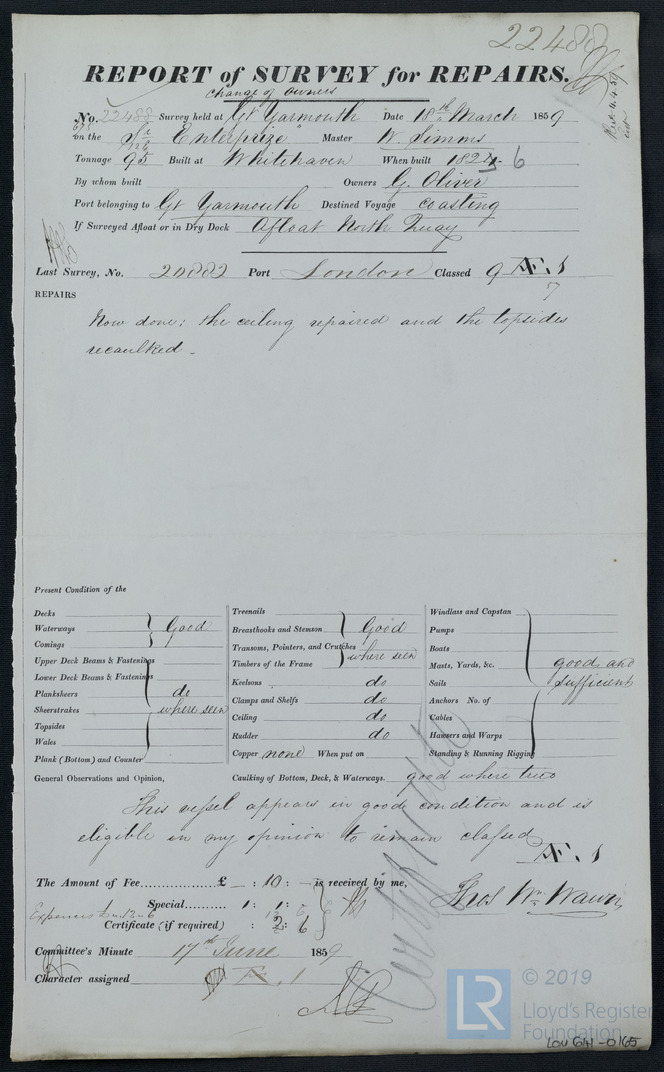 22488
REPORT of SURVEY for REPAIRS.
Change of Owners
No. 22488 Survey held at Gt Yarmouth Date 18th March 1859
on the Enterprize" Master W. Simms
Tonnage 95 Built at Whitehaven When built 1824 6
By whom built Owners G. Oliver
Port belonging to Gt Yarmouth Destined Voyage coasting
If Surveyed Afloat or in Dry Dock Afloat North Quay
Last Survey, No. 20882 Port London Classed 9 Æ 1
57
REPAIRS
Now done: the ceiling repaired and the topsides
recaulked.
Present Condition of the
Decks
Waterways Good
Comings
Upper Deck Beams & Fastenings
Lower Deck Beams & Fastenings
Planksheers do
Sheerstrakes where seen
Topsides
Wales
Plank (Bottom) and Counter
Treenails
Breasthooks and Stemson Good
Transoms, Pointers, and Crutches where seen
Timbers of the Frame
Keelsons do
Clamps and Shelfs do
Ceiling do
Rudder do
Copper none When put on
Windlass and Capstan
Pumps
Boats
Masts, Yards, &c. good and
Sails sufficient
Anchors No. of
Cables
Hawsers and Warps
Standing & Running Rigging
General Observations and Opinion, Caulking of Bottom, Deck, & Waterways. good where tried
This vessel appears in good condition and is
eligible in my opinion to remain classed
Æ 1
The Amount of Fee................£ — : 10 : — is received by me,
Special............ 1 : 1 :
Thos Wm Wawn
Expenses £ - 12 - 6
Certificate (if required) : 2 : 6
Committee's Minute 17th June 1859
Character assigned Æ 1
LR © 2019
Lloyd's Register
Foundation
LON 641-0165